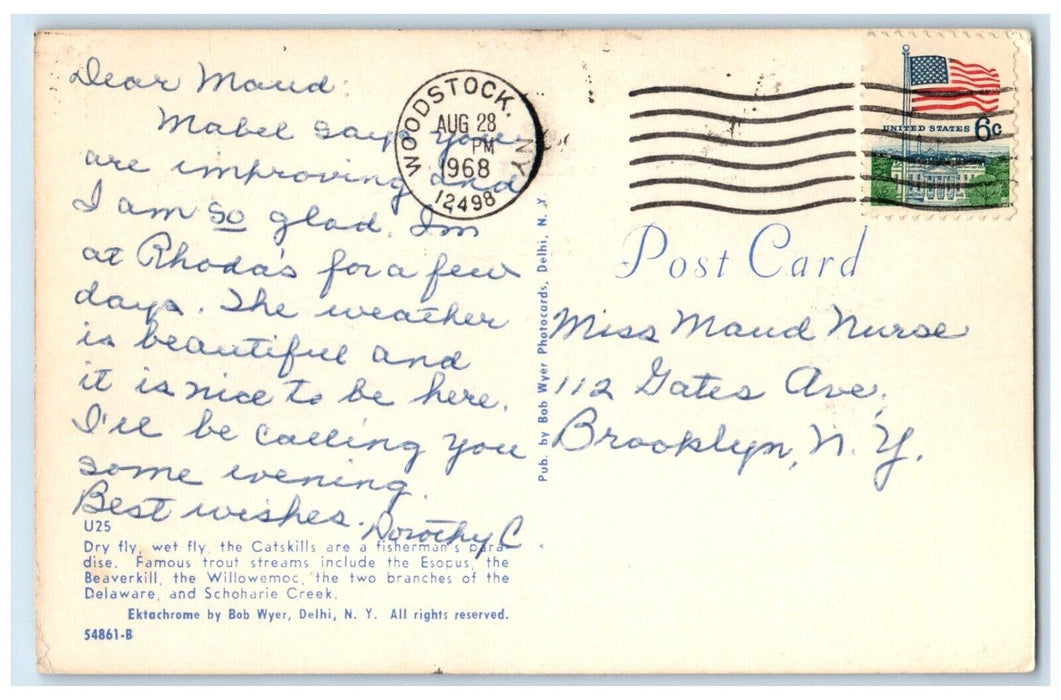 Dear Maud:
Mabel says you
are improving and
I am so glad. Im
at Rhoda's for a few
days. The weather
is beautiful and
it is nice to be here.
I'll be calling you
some evening.
Best wishes. Dorothy C.
U25
Dry fly, wet fly, the Catskills are a fisherman's para-
dise. Famous trout streams include the Esopus, the
Beaverkill, the Willowemoc, the two branches of the
Delaware, and Schoharie Creek.
Ektachrome by Bob Wyer, Delhi, N. Y. All rights reserved.
54861-B
Pub. by Bob Wyer Photocards, Delhi, N. Y
WOODSTOCK, NY
AUG 28
PM
1968
12498
UNITED STATES 6c
Post Card
Miss Maud Nurse
112 Gates Ave.
Brooklyn, N. Y.